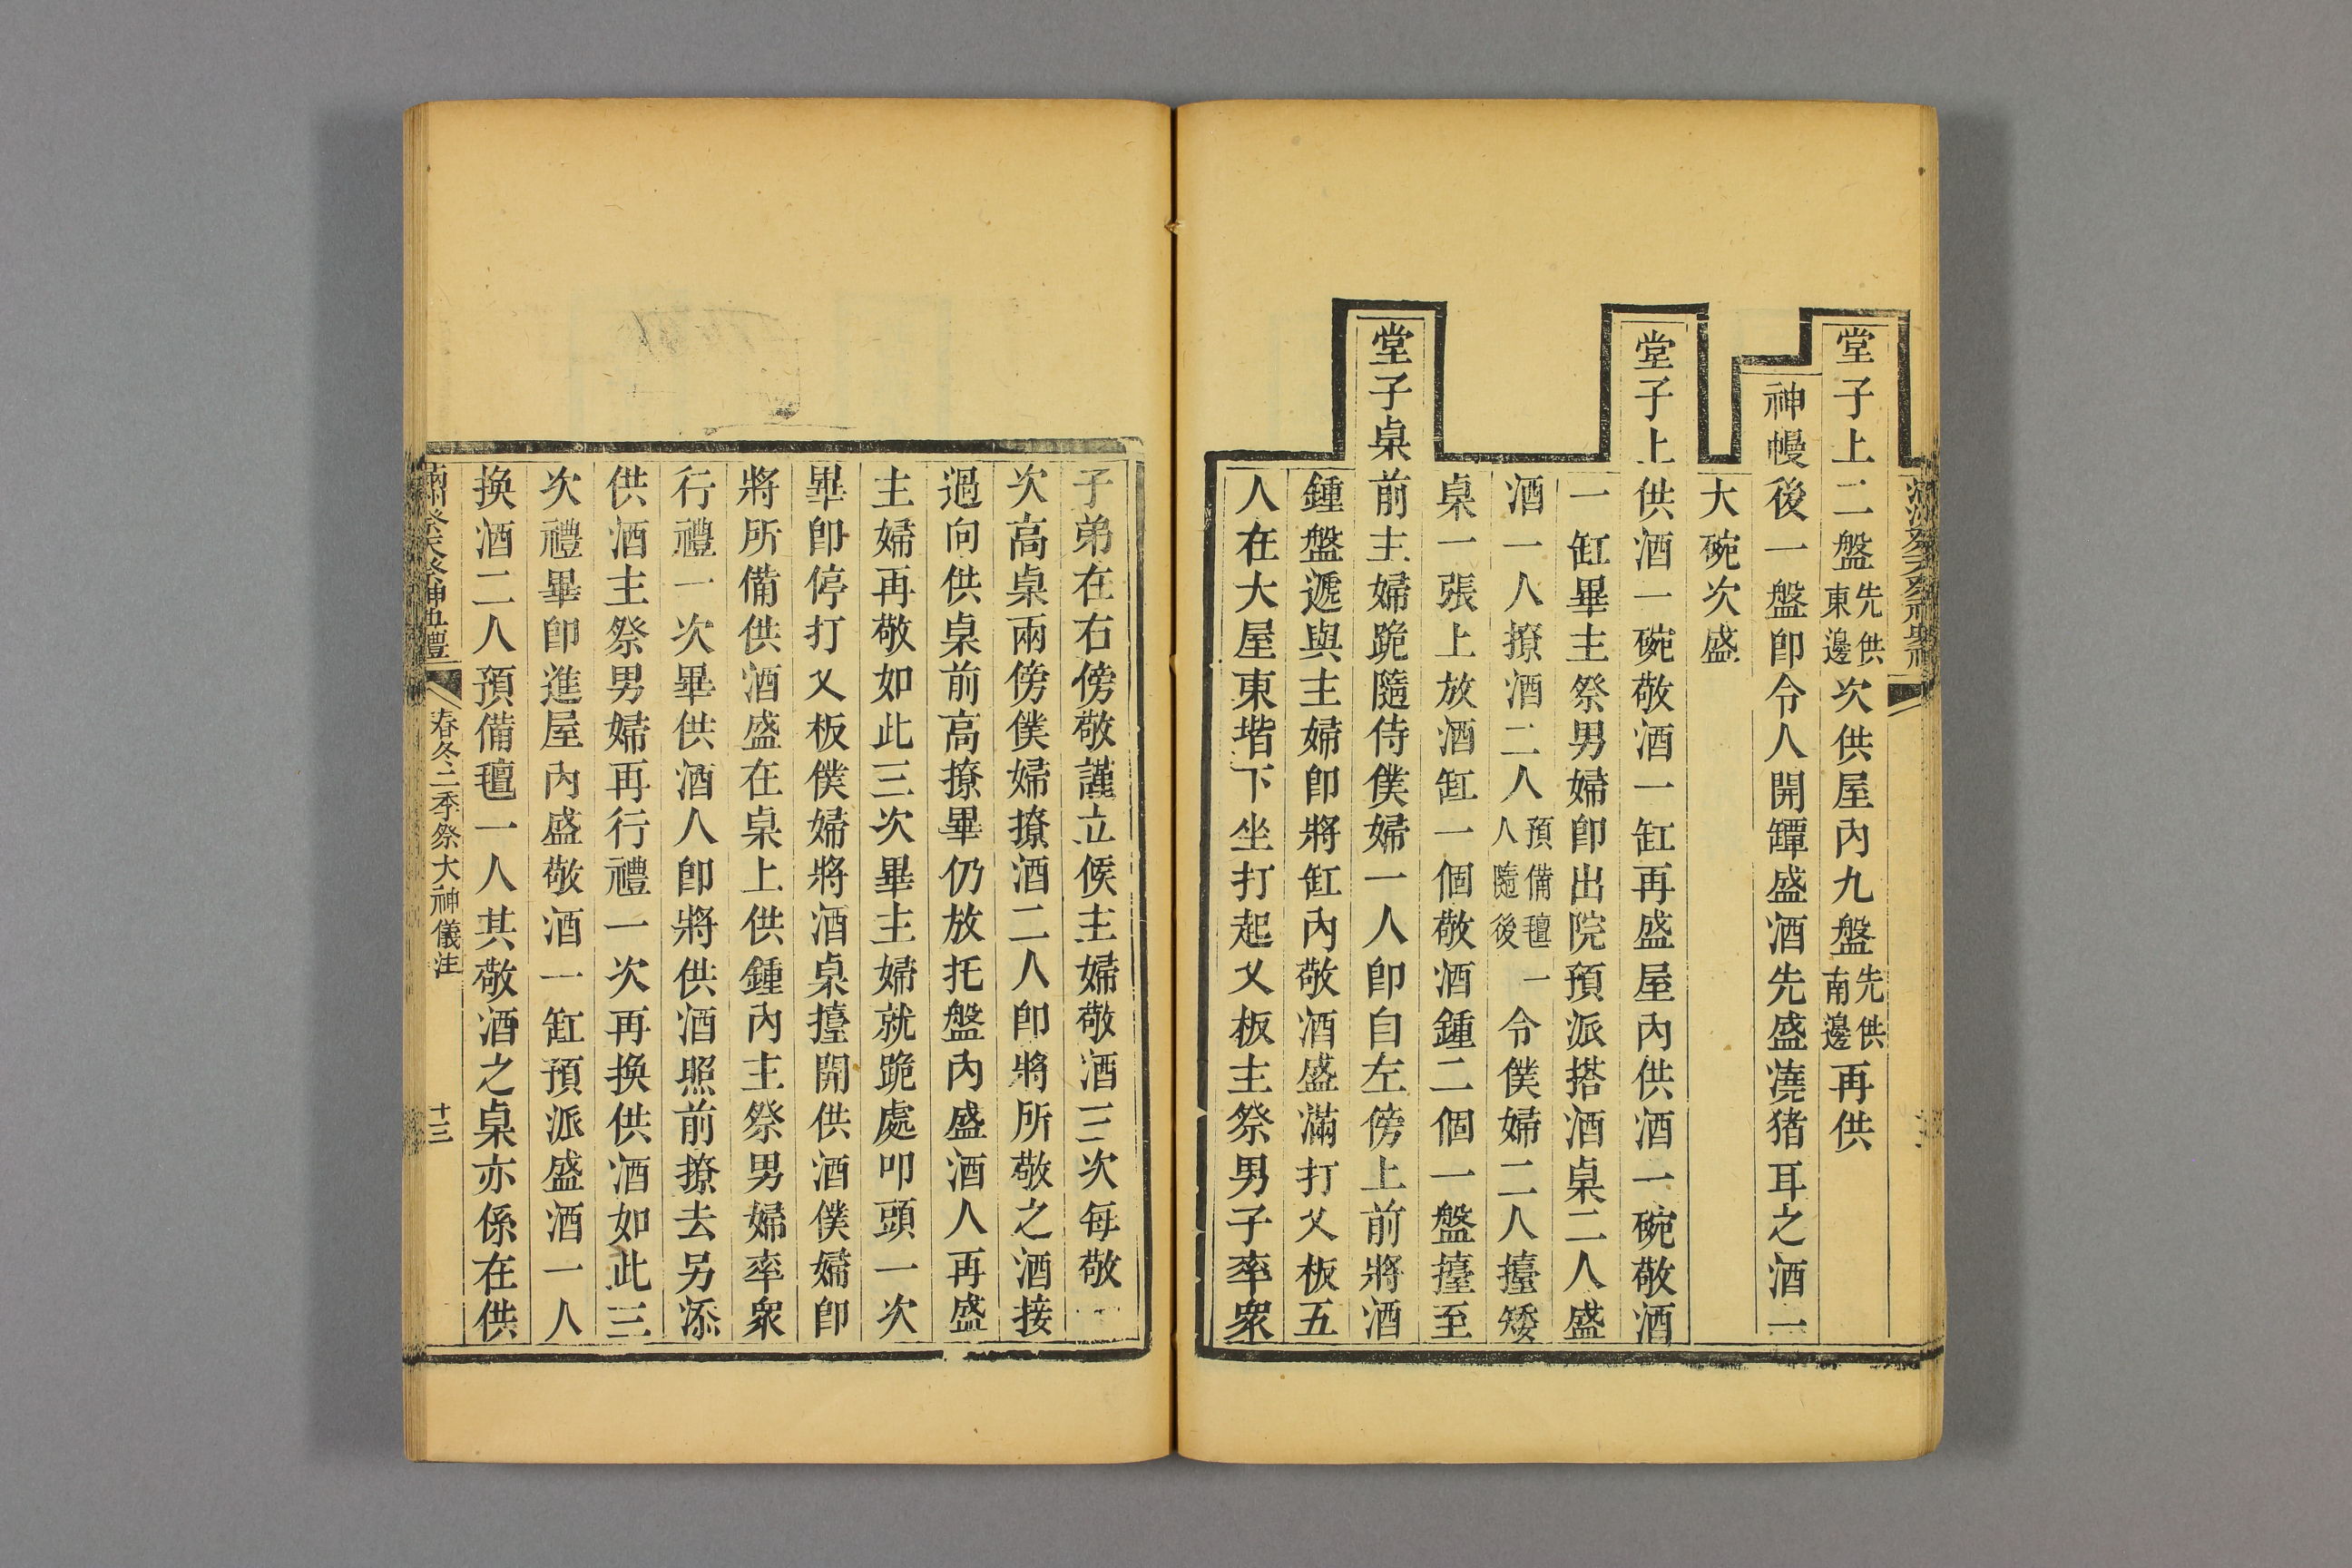 堂子上二盤先供東邊次供屋內九盤先供南邊再供
神幔後一盤卽令人開罈盛酒先盛澆猪耳之酒一
大碗次盛
堂子上供酒一碗敬酒一缸再盛屋內供酒一碗敬酒
一缸畢主祭男婦卽出院預派搭酒桌二人盛
酒一人撩酒二人預備氊一人隨後令僕婦二人擡矮
桌一張上放酒缸一個敬酒鍾二個一盤擡至
堂子桌前主婦跪隨侍僕婦一人卽自左傍上前將酒
鍾盤遞與主婦卽將缸內敬酒盛滿打乂板五
人在大屋東堦下坐打起乂板主祭男子率衆
子弟在右傍敬謹立候主婦敬酒三次每敬一
次高桌兩傍僕婦撩酒二人卽將所敬之酒接
過向供桌前高撩畢仍放托盤內盛酒人再盛
主婦再敬如此三次畢主婦就跪處叩頭一次
畢卽停打乂板僕婦將酒桌擡開供酒僕婦卽
將所備供酒盛在桌上供鍾內主祭男婦率衆
行禮一次畢供酒人卽將供酒照前撩去另添
供酒主祭男婦再行禮一次再換供酒如此三
次禮畢卽進屋內盛敬酒一缸預派盛酒一人
換酒二人預備氊一人其敬酒之桌亦係在供
春冬二季祭大神儀注
十三